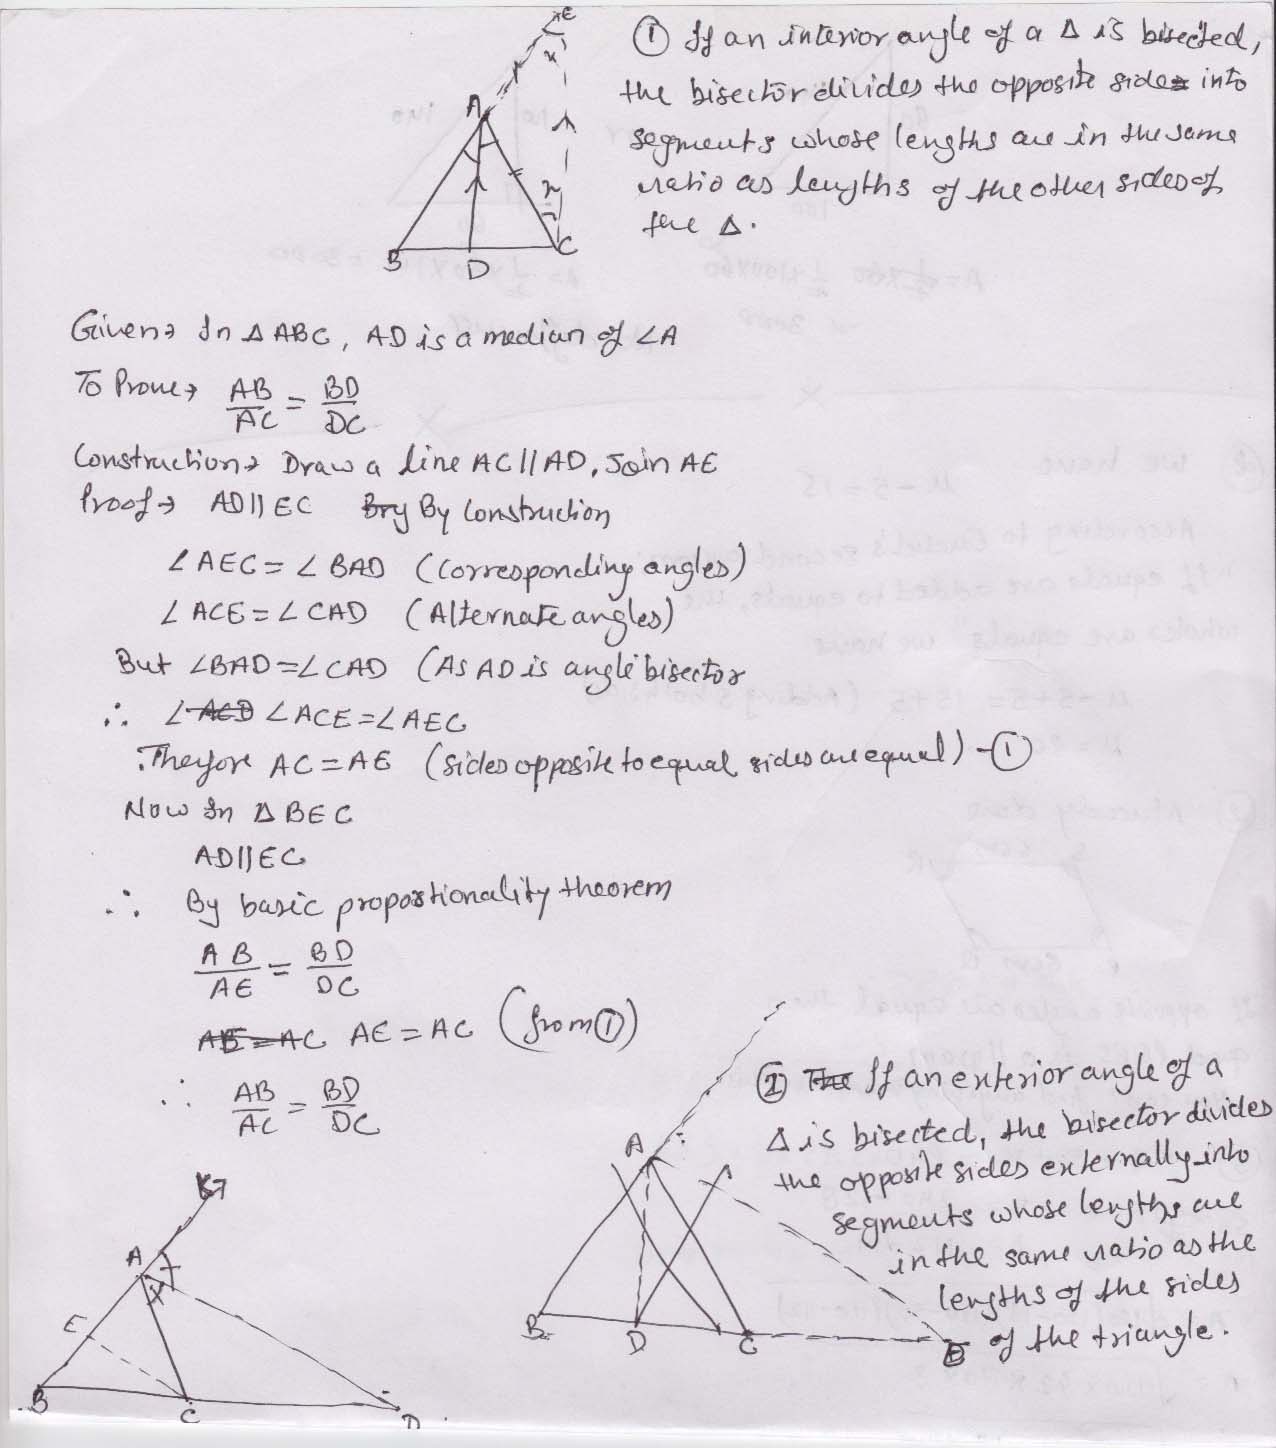 ① If an interior angle of a Δ is bisected,
the bisector divides the opposite side into
segments whose lengths are in the same
ratio as lengths of the other sides of
the Δ.
E
A
B
D
C
Given→ In Δ ABC, AD is a median of ∠A
To Prove→ AB/AC = BD/DC
Construction→ Draw a line AC || AD, Join AE
Proof→ AD || EC By By Construction
∠AEC = ∠BAD (Corresponding angles)
∠ACE = ∠CAD (Alternate angles)
But ∠BAD = ∠CAD (As AD is angle bisector
∴ ∠ACD ∠ACE = ∠AEC
Therfore AC = AE (sides opposite to equal sides are equal) - ①
Now In Δ BEC
AD || EC
∴ By basic proportionality theorem
AB/AE = BD/DC
AE = AC AE = AC (from ①)
∴ AB/AC = BD/DC
② The If an exterior angle of a
Δ is bisected, the bisector divides
the opposite sides externally into
segments whose lengths are
in the same ratio as the
lengths of the sides
of the triangle.
A
B
D
C
E
A
E
B
C
D